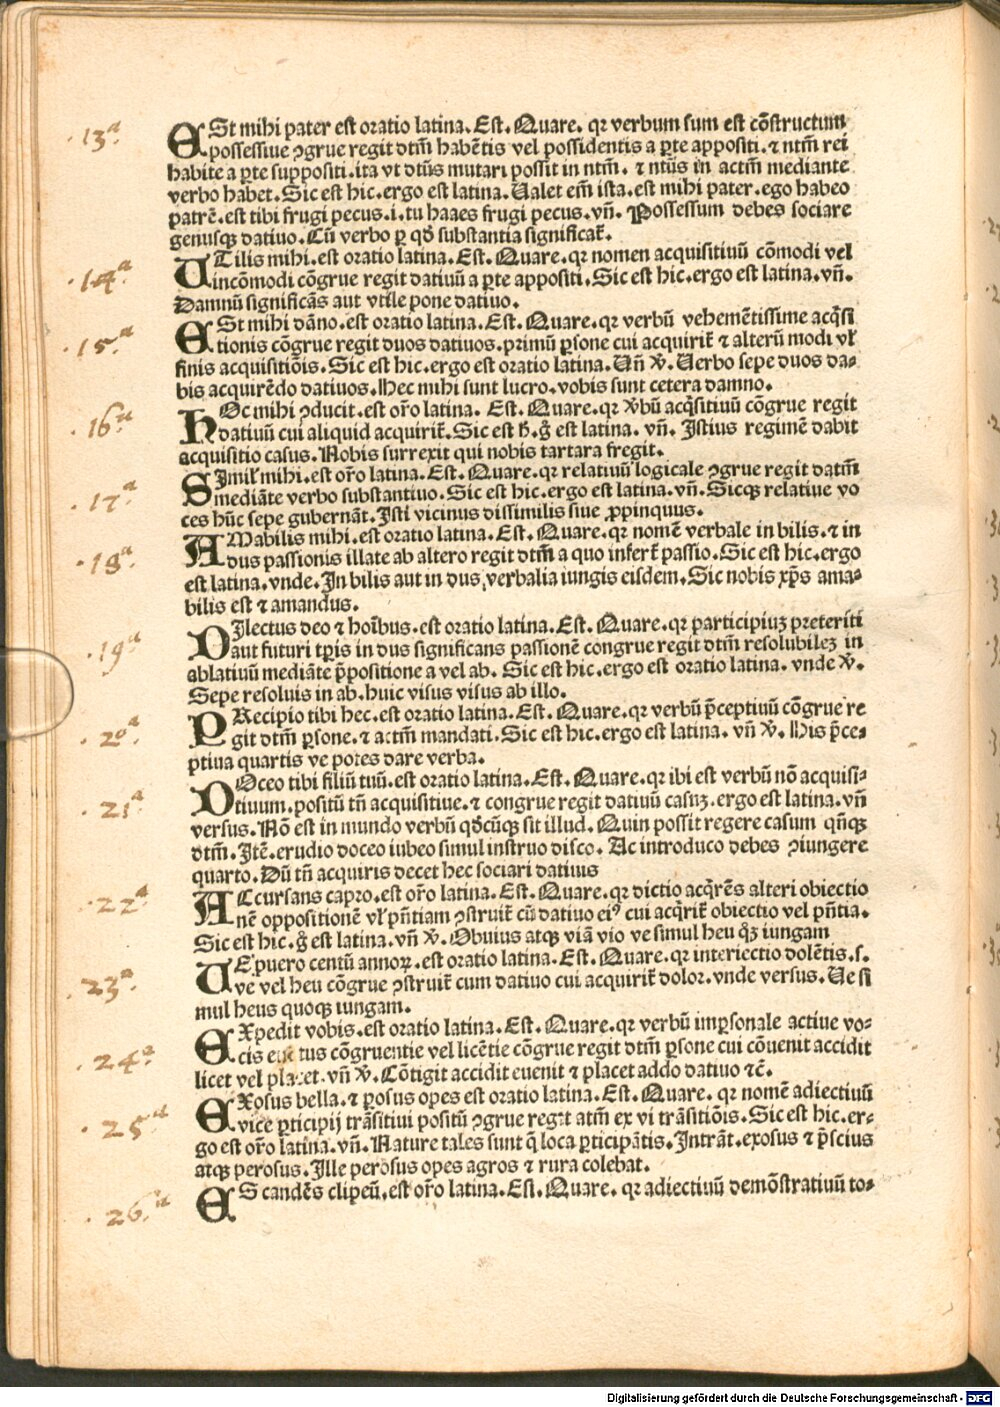 .13ª ESt mihi pater est oratio latina. Est. Quare. qꝛ verbum sum est cõstructum
possessiue ↄgrue regit dtm̃ habẽtis vel possidentis a ꝑte appositi. ⁊ ntm̃ rei
habite a ꝑte suppositi. ita vt dtũs mutari possit in ntm̃. ⁊ ntũs in actm̃ mediante
verbo habet. Sic est hic. ergo est latina. Ualet em̃ ista. est mihi pater. ego habeo
patrẽ. est tibi frugi pecus. i. tu haaes frugi pecus. vñ. Possessum debes sociare
genusqꝫ datiuo. Cũ verbo ꝑ qď substantia significat̃.
.14ª UTilis mihi. est oratio latina. Est. Quare. qꝛ nomen acquisitiuũ cõmodi vel
incõmodi cõgrue regit datiuũ a ꝑte appositi. Sic est hic. ergo est latina. vñ.
Damnũ significãs aut vtile pone datiuo.
.15ª ESt mihi dãno. est oratio latina. Est. Quare. qꝛ verbũ vehemẽtissime acq̃si
tionis cõgrue regit duos datiuos. primũ ꝑsone cui acquirit̃ ⁊ alterũ modi vł
finis acquisitiõis. Sic est hic. ergo est oratio latina. Uñ v̾. Uerbo sepe duos da⸗
bis acquirẽdo datiuos. Hec mihi sunt lucro. vobis sunt cetera damno.
.16ª HOc mihi ↄducit. est or̃o latina. Est. Quare. qꝛ v̾bũ acq̃sitiuũ cõgrue regit
datiuũ cui aliquid acquirit̃. Sic est h̃. g̊ est latina. vñ. Istius regimẽ dabit
acquisitio casus. Nobis surrexit qui nobis tartara fregit.
.17ª SImił mihi. est or̃o latina. Est. Quare. qꝛ relatiuũ logicale ↄgrue regit datm̃
mediãte verbo substantiuo. Sic est hic. ergo est latina. vñ. Sicqꝫ relatiue vo
ces hũc sepe gubernãt. Isti vicinus dissimilis siue ꝓpinquus.
.18ª AMabilis mihi. est oratio latina. Est. Quare. qꝛ nomẽ verbale in bilis. ⁊ in
dus passionis illate ab altero regit dtm̃ a quo infert̃ passio. Sic est hic. ergo
est latina. vnde. In bilis aut in dus, verbalia iungis eisdem. Sic nobis xp̃s ama⸗
bilis est ⁊ amandus.
.19ª DIlectus deo ⁊ hoĩbus. est oratio latina. Est. Quare. qꝛ participiuꝫ preteriti
aut futuri tꝑis in dus significans passionẽ congrue regit dtm̃ resolubileꝫ in
ablatiuũ mediãte p̃positione a vel ab. Sic est hic. ergo est oratio latina. vnde v̾.
Sepe resoluis in ab. huic visus visus ab illo.
.20ª. PRecipio tibi hec. est oratio latina. Est. Quare. qꝛ verbũ p̃ceptiuũ cõgrue re
git dtm̃ ꝑsone. ⁊ actm̃ mandati. Sic est hic. ergo est latina. vñ v̾. His p̃ce⸗
ptiua quartis ve potes dare verba.
.21ª DOceo tibi filiũ tuũ. est oratio latina. Est. Quare. qꝛ ibi est verbũ nõ acquisi⸗
tiuum. positũ tñ acquisitiue. ⁊ congrue regit datiuũ casuꝫ. ergo est latina. vñ
versus. Nõ est in mundo verbũ qďcũqꝫ sit illud. Quin possit regere casum qñqꝫ
dtm̃. Itẽ. erudio doceo iubeo simul instruo disco. Ac introduco debes ↄiungere
quarto. Dũ tñ acquiris decet hec sociari datiuis
.22ª ACcursans capro. est or̃o latina. Est. Quare. qꝛ dictio acq̃rẽs alteri obiectio
nẽ oppositionẽ vł pñtiam ↄstruit̃ cũ datiuo eiꝰ cui acq̃rit̃ obiectio vel pñtia.
Sic est hic. g̊ est latina. vñ v̾. Obuius atqꝫ viã vio ve simul heu q̊ꝫ iungam
.23ª. UE puero centũ annoꝝ. est oratio latina. Est. Quare. qꝛ interiectio dolẽtis. s.
ve vel heu cõgrue ↄstruit̃ cum datiuo cui acquirit̃ dolor. vnde versus. Ue si
mul heus quoqꝫ iungam.
.24ª EXpedit vobis. est oratio latina. Est. Quare. qꝛ verbũ imꝑsonale actiue vo⸗
cis tus cõgruentie vel licẽtie cõgrue regit dtm̃ ꝑsone cui cõuenit accidit
licet vel placet. vñ v̾. Cõtigit accidit euenit ⁊ placet addo datiuo ⁊c̃.
.25ª EXosus bella. ⁊ ꝑosus opes est oratio latina. Est. Quare. qꝛ nomẽ adiectiuũ
vice ꝑticipij trãsitiui positũ ↄgrue regit atm̃ ex vi trãsitiõis. Sic est hic. er⸗
go est or̃o latina. vñ. Nature tales sunt q̃ loca ꝑticipãtis. Intrãt. exosus ⁊ p̃scius
atqꝫ perosus. Ille perosus opes agros ⁊ rura colebat.
.26.ª ES candẽs clipeũ. est or̃o latina. Est. Quare. qꝛ adiectiuũ demõstratiuũ to⸗
Digitalisierung gefördert durch die Deutsche Forschungsgemeinschaft - DFG